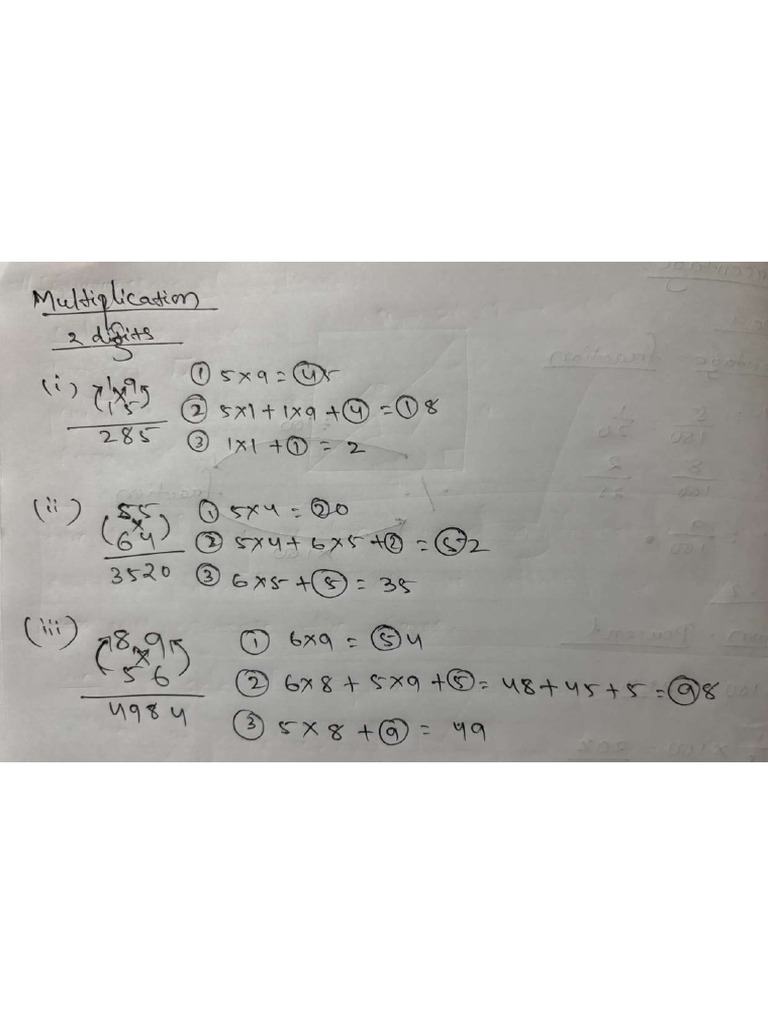 Multiplication
2 digits
(i) 19 ① 5×9 = ④5
15 ② 5×1+1×9+④ = ①8
285 ③ 1×1+① = 2
(ii) 55 ① 5×4 = ②0
64 ② 5×4+6×5+② = ⑤2
3520 ③ 6×5+⑤ = 35
(iii) 89 ① 6×9 = ⑤4
56 ② 6×8+5×9+⑤ = 48+45+5 = ⑨8
4984 ③ 5×8+⑨ = 49